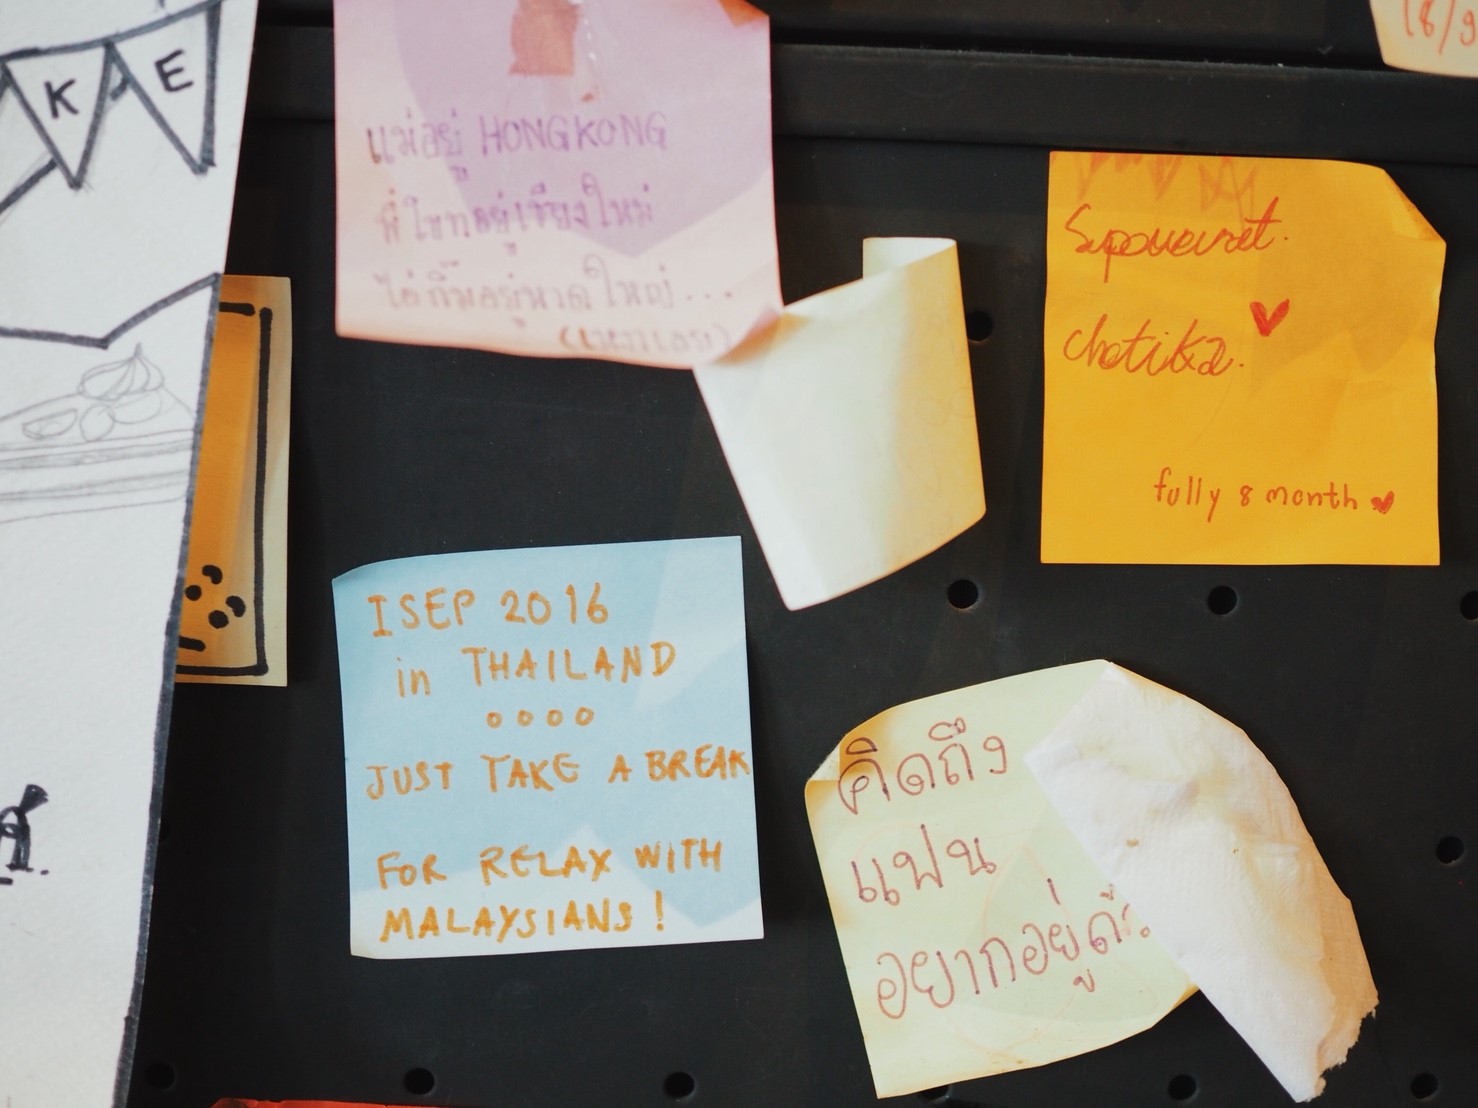 K E
แม่อยู่ HONGKONG
พี่ไขทอยู่เชียงใหม่
ไอ่กิ๊มอยู่หาดใหญ่...
(8/9
Supawarat.
chotika.
fully 8 month
1 SEP 2016
in THAILAND
JUST TAKE A BREAK
FOR RELAX WITH
MALAYSIANS!
คิดถึง
แฟน
อยากอยู่ด้